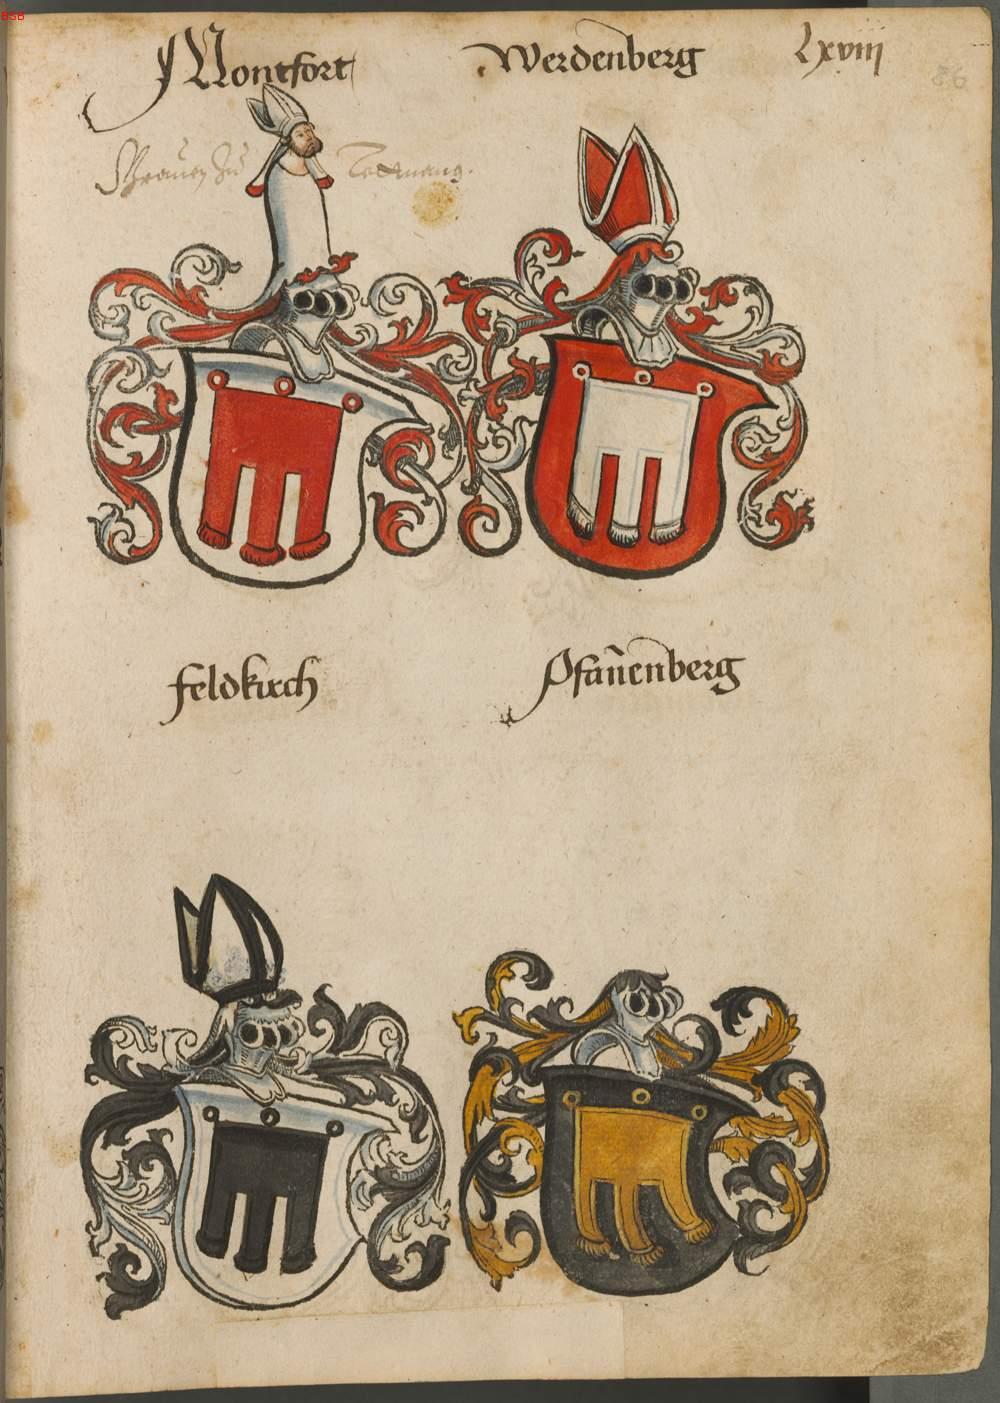 BSB
Montfort Werdenberg Lxviii
zu Tettnang.
feldkirch Pfan̄enberg